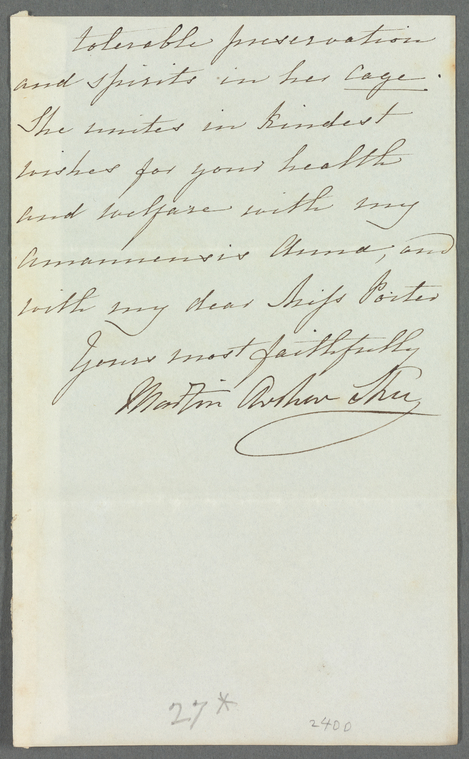 tolerable preservation
and spirits in her Cage.
She unites in kindest
wishes for your health
and welfare with my
amanuensis Anna, and
with my dear Miss Porter
Yours most faithfully
Martin Archer Shee
27*
2400